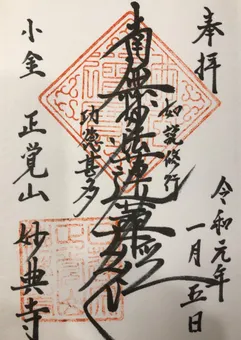 奉拝
令和元年
一月五日
如説修行
南無妙法蓮華経
功徳甚多
小金 正覚山 妙典寺